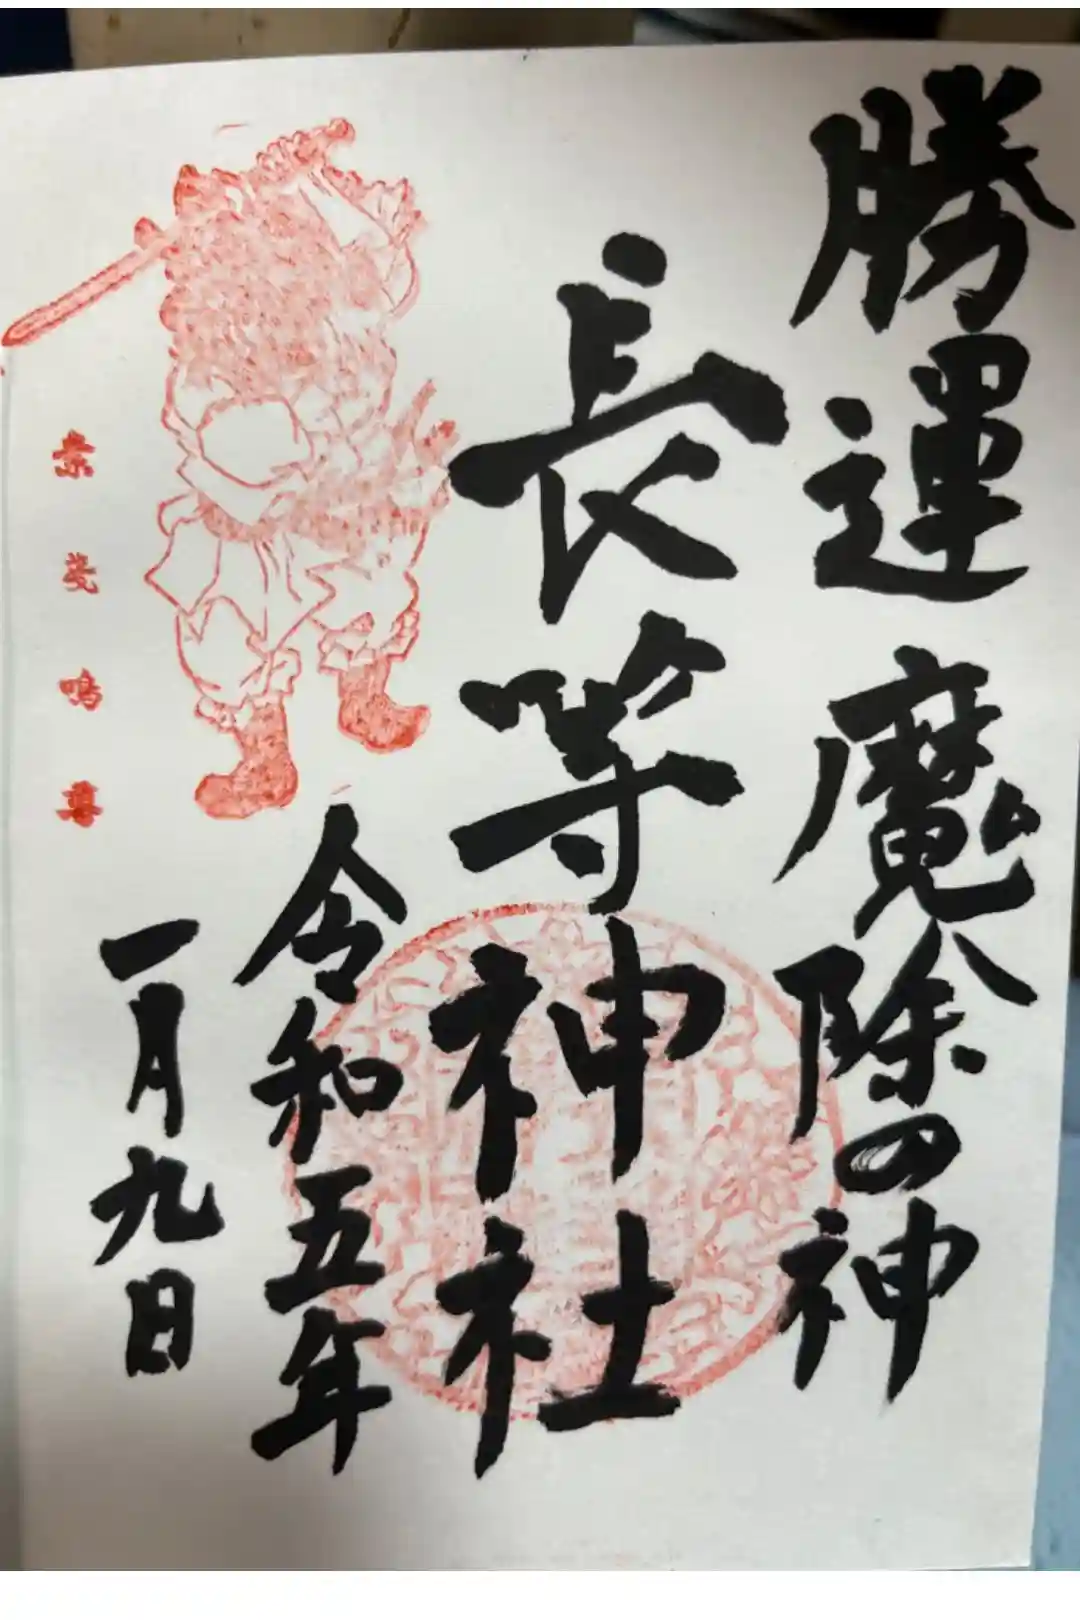 勝運魔除の神
長等神社
令和五年
一月九日
素戔嗚尊